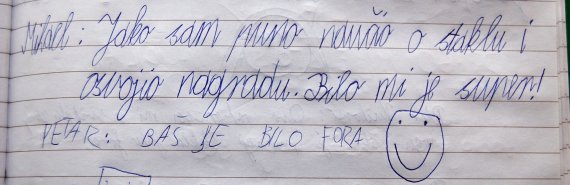 Mihael: Jako sam puno naučio o staklu i
osvojio nagrddu. Bilo mi je super!
PETAR: BAŠ JE BILO FORA